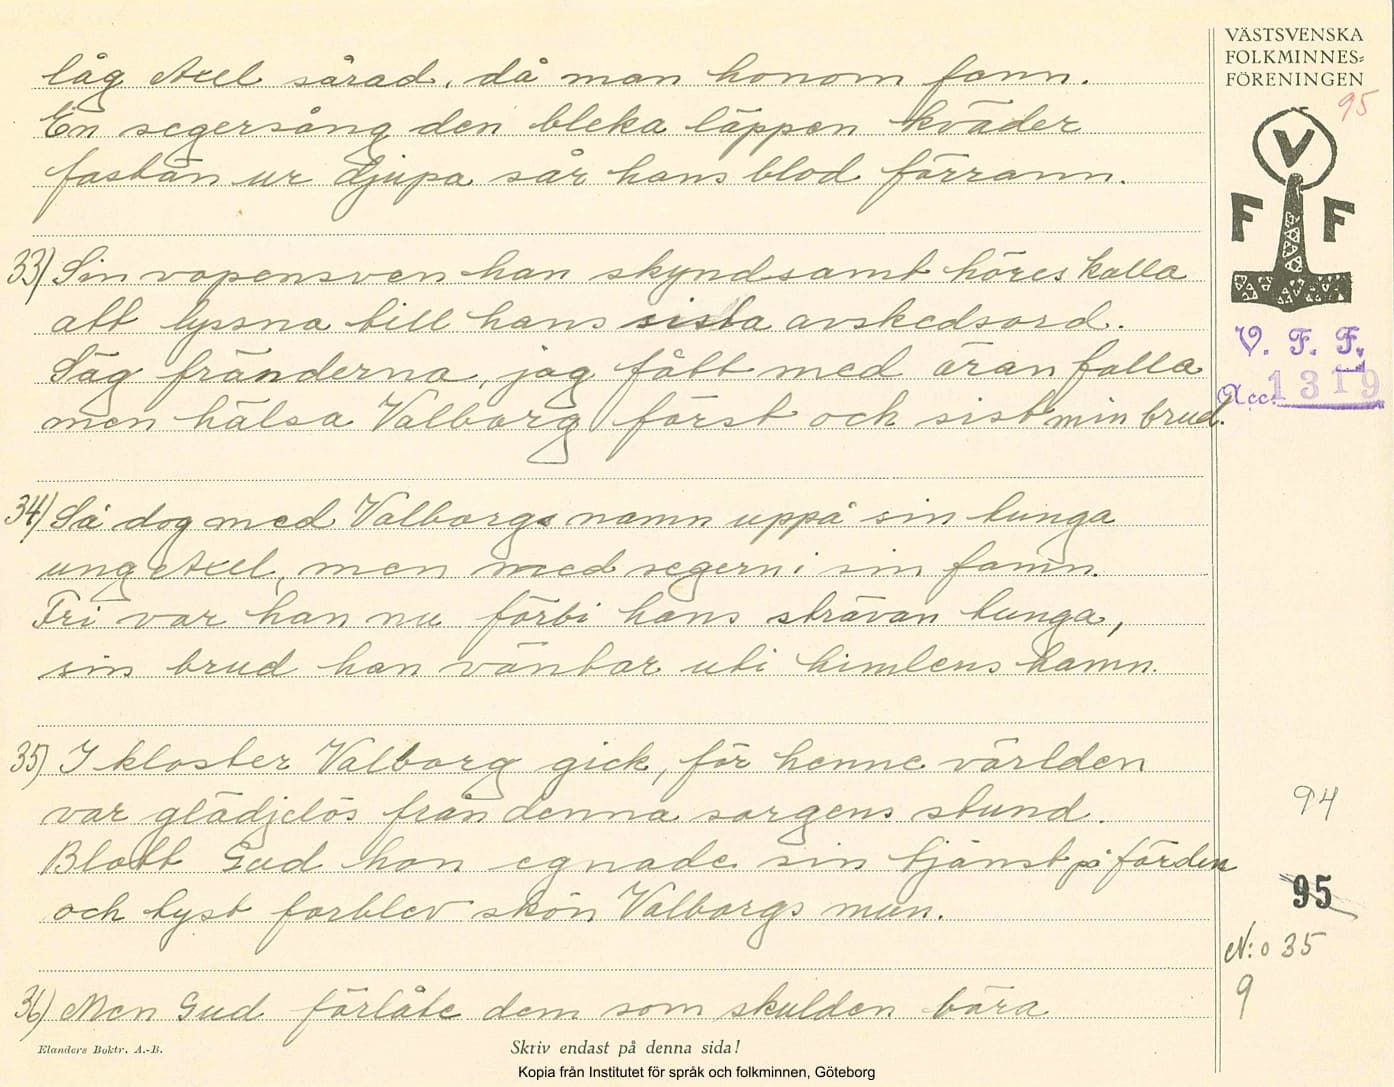 låg Axel sårad, då man honom fann.
En segersång den bleka läppen kväder
fastän ur djupa sår hans blod förrann.
33) Sin vapensven han skyndsamt höres kalla
att lyssna till hans sista avskedsord.
Säg fränderna, jag fått med äran falla
men hälsa Valborg först och sist min brud.
34) Så dog med Valborgs namn uppå sin tunga
ung Axel, men med segern i sin famn.
Fri var han nu förbi hans strävan tunga,
sin brud han väntar uti himlens hamn.
35) I kloster Valborg gick, för henne världen
var glädjelös från denna sorgens stund.
Blott Gud hon egnade sin tjänst på färden
och tyst forblev skön Valborgs mun.
36) Men Gud förlåte dem som skulden bära
Elanders Boktr. A.-B.
Skriv endast på denna sida!
Kopia från Institutet för språk och folkminnen, Göteborg
VÄSTSVENSKA
FOLKMINNES-
FÖRENINGEN
95
V
F F
V. F. F.
Acc. 1319
94
95
N:o 35
9